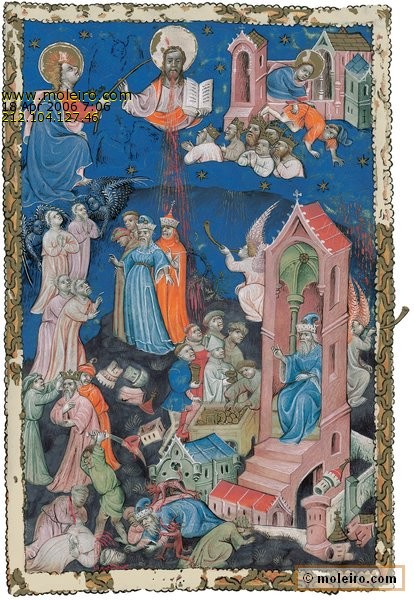 © www.moleiro.com
18 Apr 2006 7:06
212.104.127.46
© moleiro.com